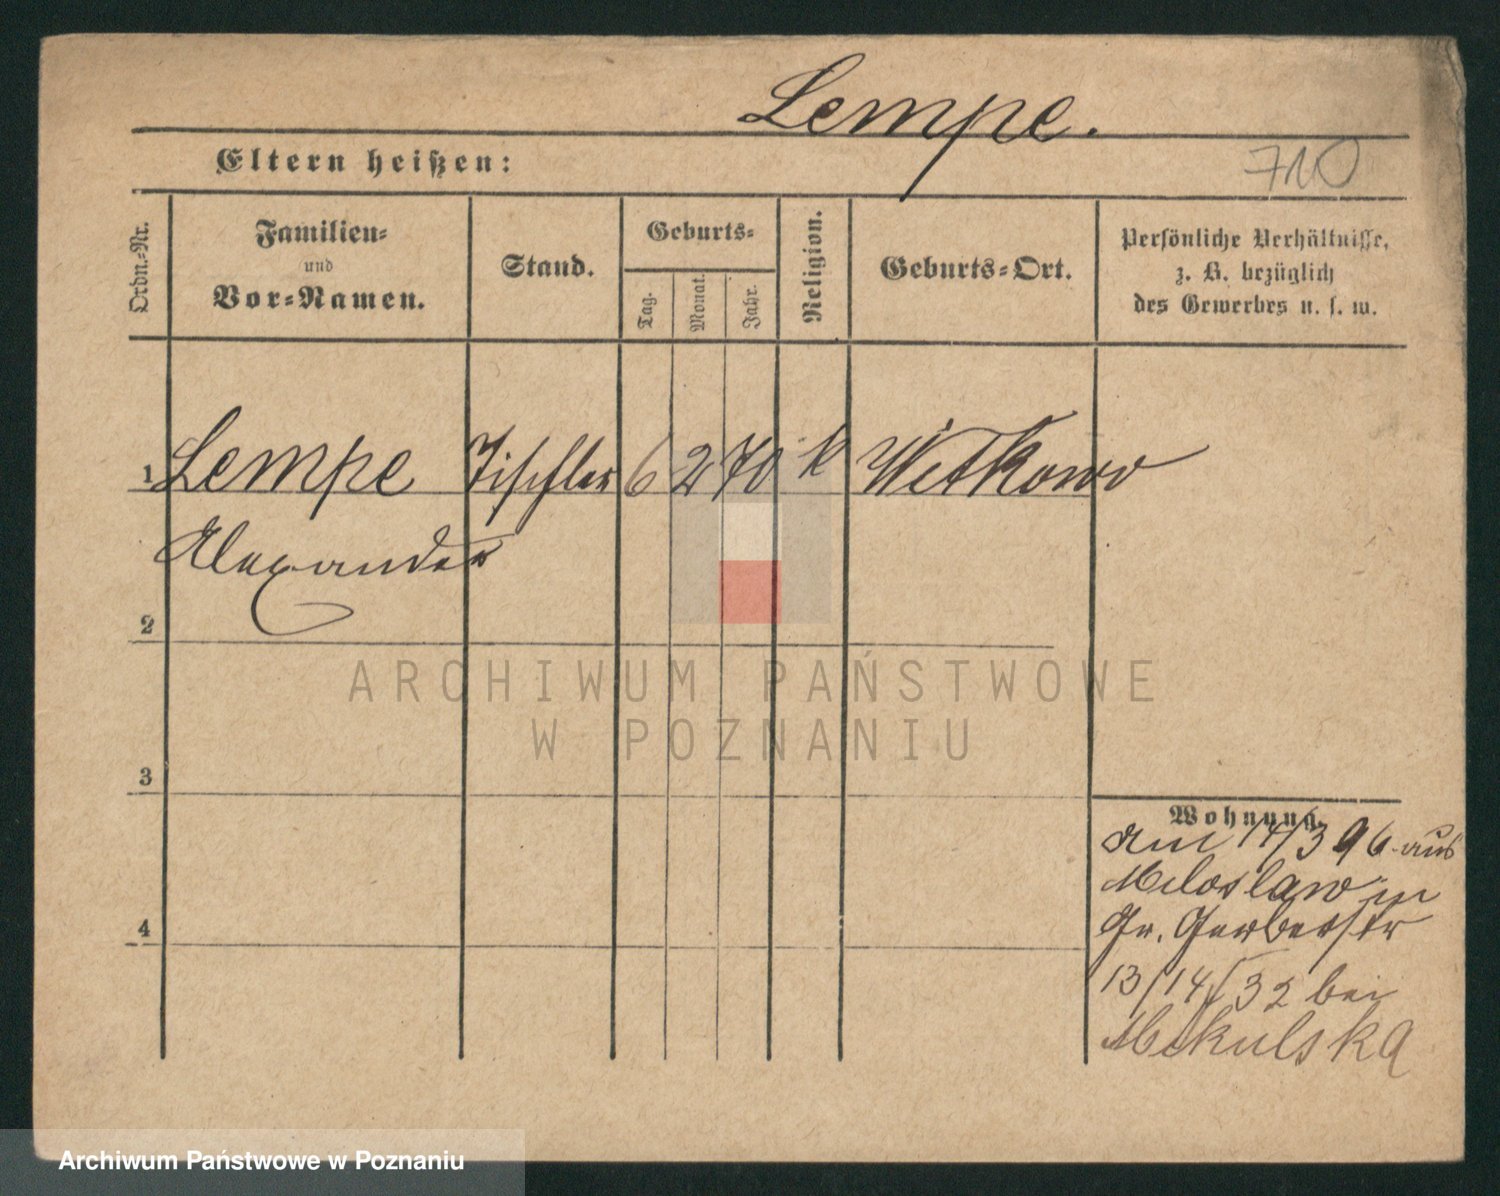 Lempe.
Eltern heißen:
710
Ordn.-Nr.
Familien-
und
Vor-Namen.
Stand.
Geburts-
Tag.
Monat.
Jahr.
Religion.
Geburts-Ort.
Persönliche Verhältnisse,
z. B. bezüglich
des Gewerbes u. s. w.
1 Lempe Tischler 6 2 70 k Witkowo
Alexander
2
3
4
Wohnung.
am 14/3 96 aus
Miloslaw in
Gr. Gerberstr
13/14/32 bei
Mikulska
ARCHIWUM PAŃSTWOWE
W POZNANIU
Archiwum Państwowe w Poznaniu